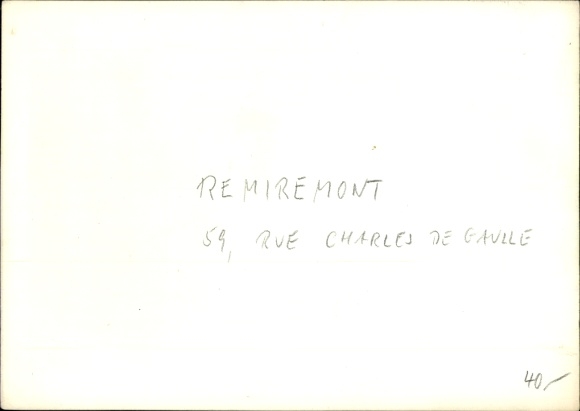 REMIREMONT
59, RUE CHARLES DE GAULLE
40/